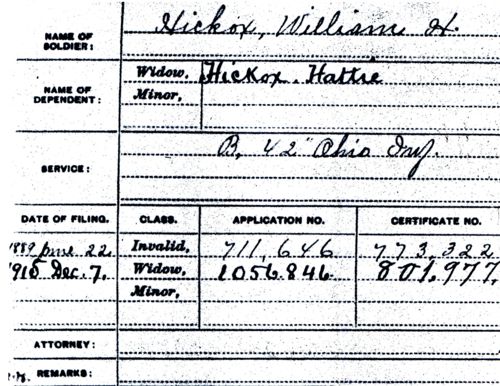 NAME OF SOLDIER: Hickox, William H.
NAME OF DEPENDENT: Widow, Hickox, Hattie
Minor,
SERVICE: B, 42" Ohio Inf.
DATE OF FILING. CLASS. APPLICATION NO. CERTIFICATE NO.
1889 June 22 Invalid, 711,646 773,322
1915 Dec. 7. Widow, 1056.846 801,977,
Minor,
ATTORNEY:
REMARKS: